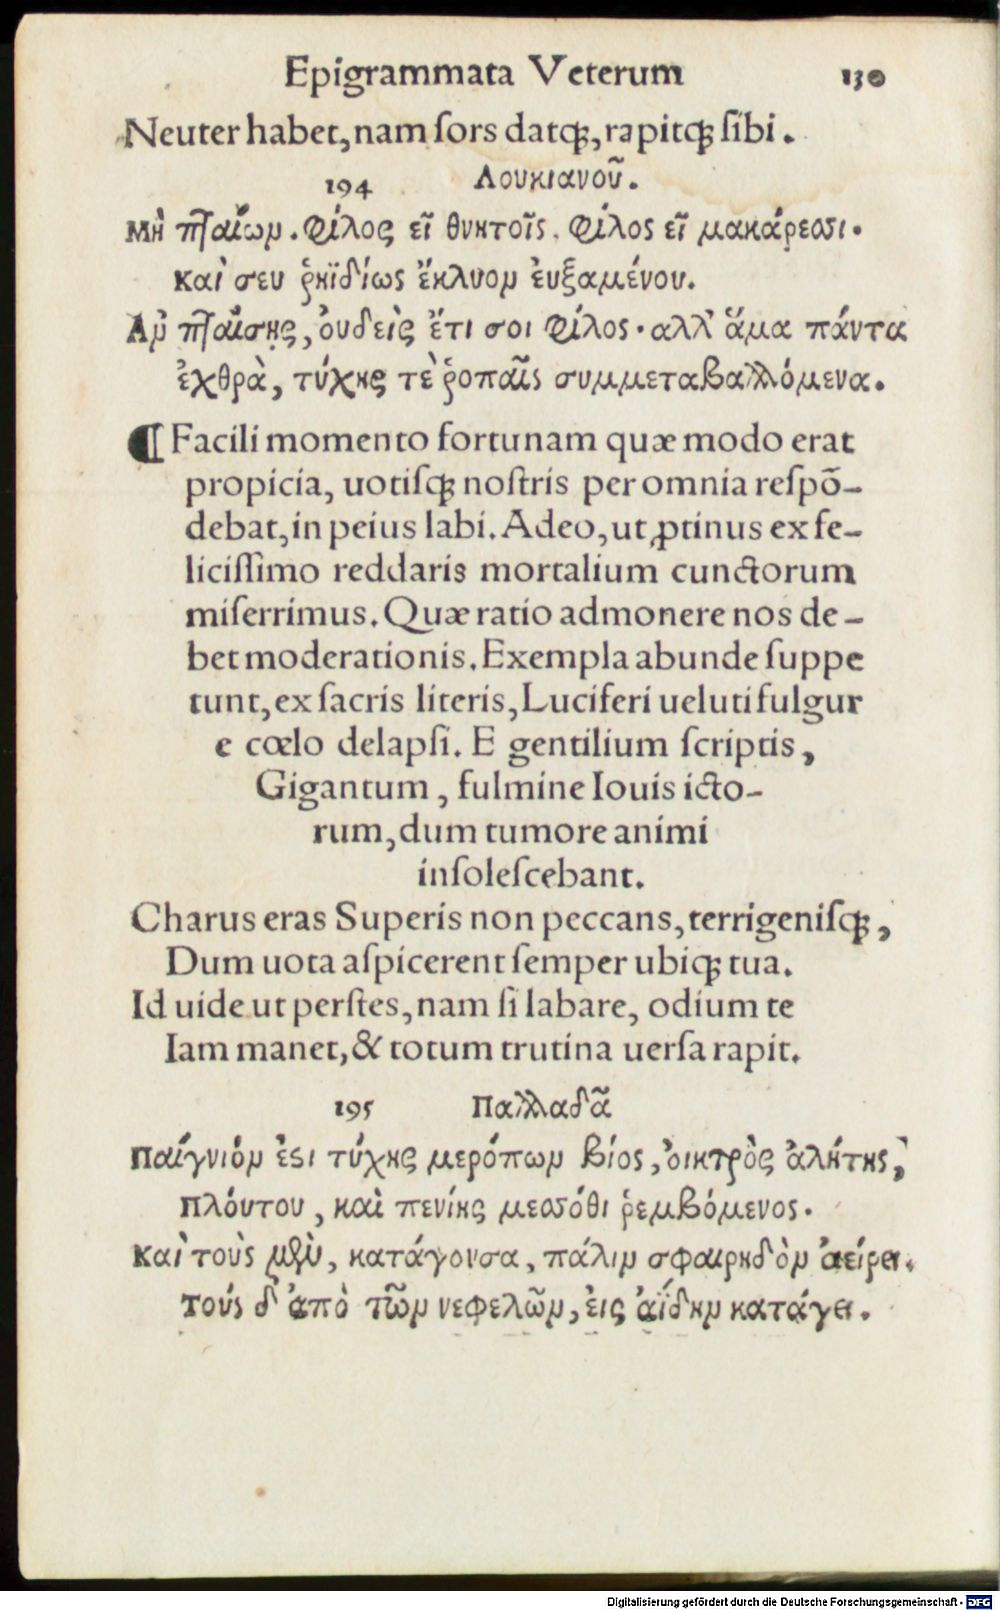 Epigrammata Veterum 130
Neuter habet, nam ſors datqꝫ, rapitqꝫ ſibi.
194 Λουκιανοῦ.
Μὴ πταίων. φίλος εἶ θνητοῖς. φίλος εἶ μακάρεσσι.
Καί σευ ῥηϊδίως ἔκλυον ἐυξαμένου.
Αν πταίσῃς, ὀυδεὶς ἔτι σοι φίλος. αλλ' ἅμα πάντα
ἐχθρὰ, τύχης τὲ ῥοπαῖς συμμεταβαλλόμενα.
¶ Facili momento fortunam quæ modo erat
propicia, uotiſqꝫ noſtris per omnia reſpõ-
debat, in peius labi. Adeo, ut ꝓtinus ex fe-
liciſſimo reddaris mortalium cunctorum
miſerrimus. Quæ ratio admonere nos de-
bet moderationis. Exempla abunde ſuppe
tunt, ex ſacris literis, Luciferi ueluti fulgur
e cœlo delapſi. E gentilium ſcriptis,
Gigantum, fulmine Iouis icto-
rum, dum tumore animi
inſoleſcebant.
Charus eras Superis non peccans, terrigeniſqꝫ,
Dum uota aſpicerent ſemper ubiqꝫ tua.
Id uide ut perſtes, nam ſi labare, odium te
Iam manet, & totum trutina uerſa rapit.
195 Παλλαδᾶ
Παίγνιόν ἐστι τύχης μερόπων βίος, ὀικτρὸς ἀλήτης,
Πλόυτου, καὶ πενίης μεσσόθι ῥεμβόμενος.
Καὶ τοὺς μὲν, κατάγουσα, πάλιν σφαιρηδὸν ἀείρει.
Τοὺς δ' ἀπὸ τῶν νεφελῶν, ἐις ἀΐδην κατάγει.
Digitalisierung gefördert durch die Deutsche Forschungsgemeinschaft - DFG